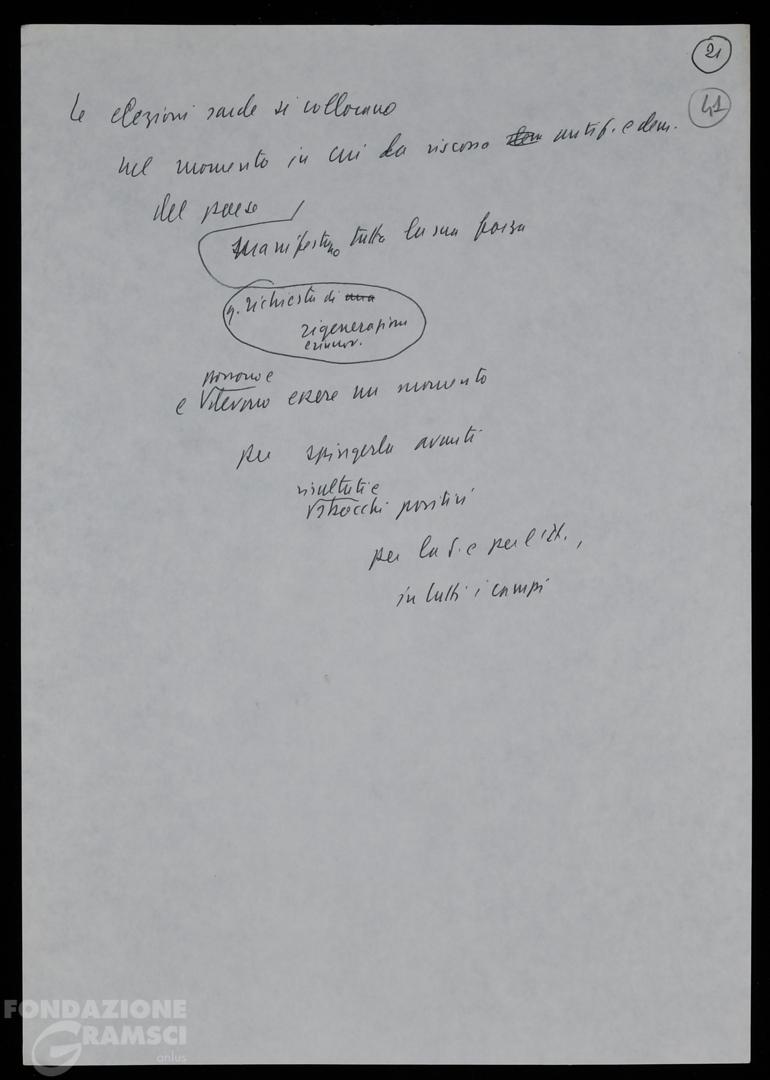 21
41
Le elezioni sarde si collocano
nel momento in cui la riscossa dem antif. e dem.
del paese
manifestano tutta la sua forza
q. richiesta di una
rigenerazione
e rinnov.
possono e
e devono essere un momento
per spingerla avanti
risultati e
sbocchi positivi
per la S. e per l'It.,
in tutti i campi
FONDAZIONE
GRAMSCI
onlus